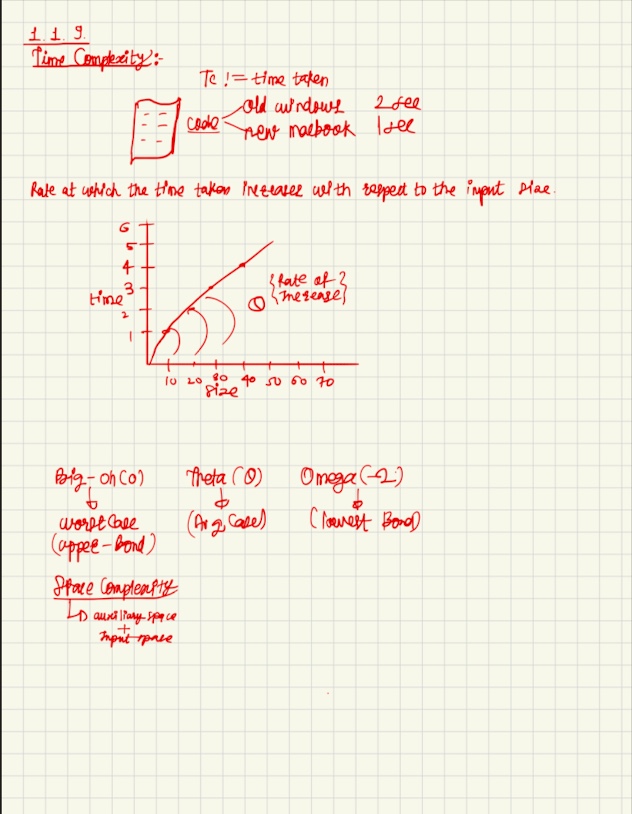 1.1.9.
Time Complexity:-
Tc != time taken
Code
old windows 2 sec
new macbook 1 sec
Rate at which the time taken increases with respect to the input size.
6
5
4
3
2
1
time
{Rate of
increase}
10 20 30 40 50 60 70
size
Big-oh(O) Theta(θ) Omega(Ω)
worst case (Avg Case) (lowest Bond)
(upper-Bond)
Space Complexity
auxiliary space
+
Input space